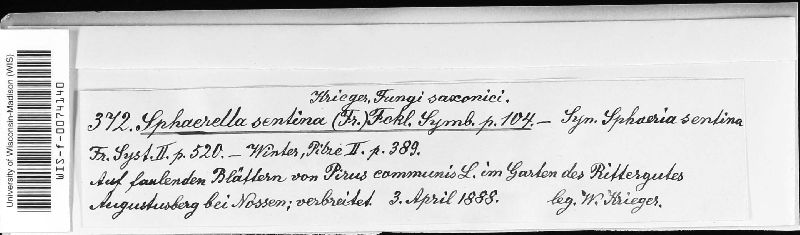 Krieger, Fungi saxonici.
372. Sphaerella sentina (Fr.) Fckl. Symb. p. 104. — Syn. Sphaeria sentina
Fr. Syst. II. p. 520. — Winter, Pilze II. p. 389.
Auf faulenden Blättern von Pirus communis L. im Garten des Rittergutes
Augustusberg bei Nossen; verbreitet. 3. April 1888. leg. W. Krieger.
University of Wisconsin-Madison (WIS)
WIS-f-0074140